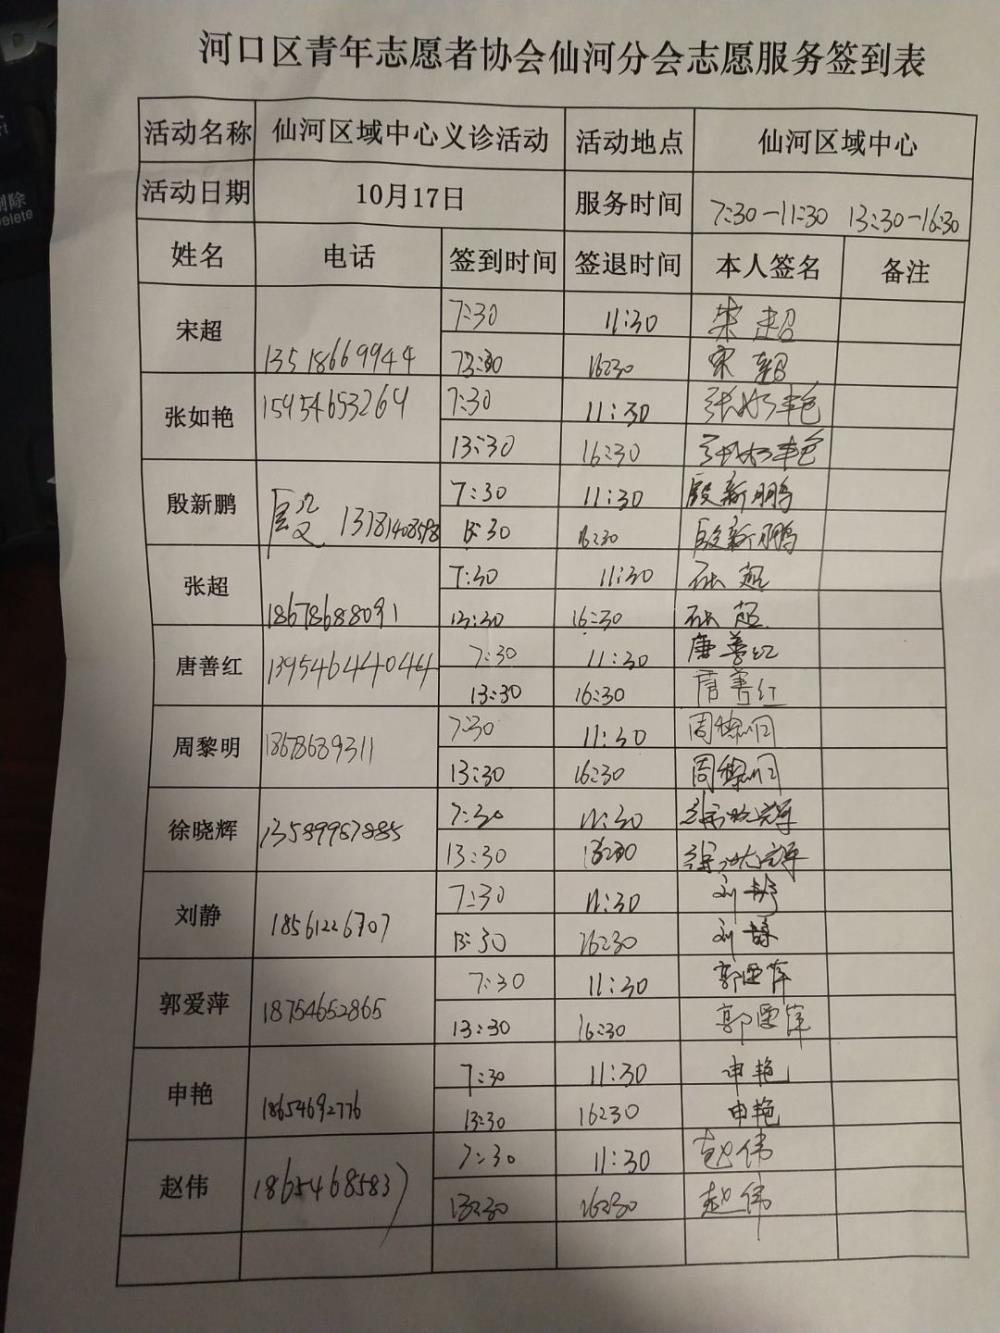 河口区青年志愿者协会仙河分会志愿服务签到表
活动名称 仙河区域中心义诊活动 活动地点 仙河区域中心
活动日期 10月17日 服务时间 7:30-11:30 13:30-16:30
姓名 电话 签到时间 签退时间 本人签名 备注
宋超 13518669944 7:30 11:30 宋超
13:30 16:30 宋超
张如艳 15954653264 7:30 11:30 张如艳
13:30 16:30 张如艳
殷新鹏 13181408598 7:30 11:30 殷新鹏
13:30 16:30 殷新鹏
张超 18678688091 7:30 11:30 张超
13:30 16:30 张超
唐善红 13954644044 7:30 11:30 唐善红
13:30 16:30 唐善红
周黎明 18678689311 7:30 11:30 周黎明
13:30 16:30 周黎明
徐晓辉 13589967885 7:30 11:30 徐晓辉
13:30 16:30 徐晓辉
刘静 18561226707 7:30 11:30 刘静
13:30 16:30 刘静
郭爱萍 18754652865 7:30 11:30 郭爱萍
13:30 16:30 郭爱萍
申艳 18654692776 7:30 11:30 申艳
13:30 16:30 申艳
赵伟 18654685837 7:30 11:30 赵伟
13:30 16:30 赵伟
删除
Delete